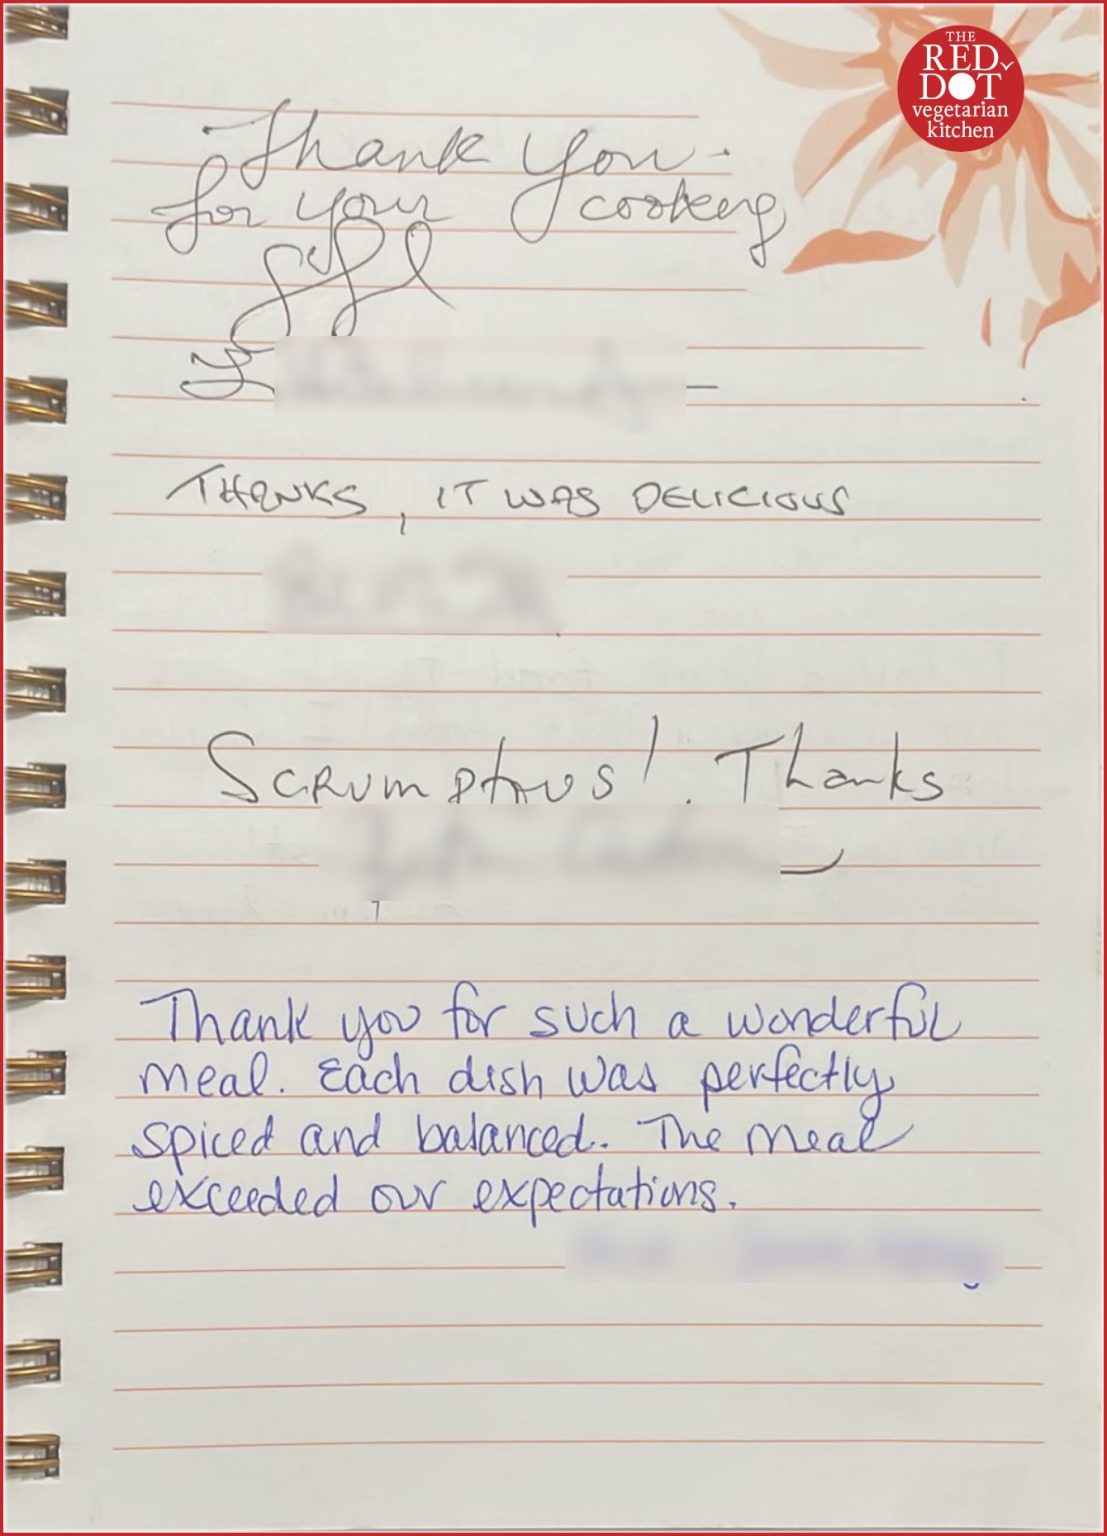 THE
RED
DOT
vegetarian
kitchen
Thank you.
for your cooking
THANKS, IT WAS DELICIOUS
Scrumptous! Thanks
Thank you for such a wonderful
meal. Each dish was perfectly
spiced and balanced. The meal
exceeded our expectations.